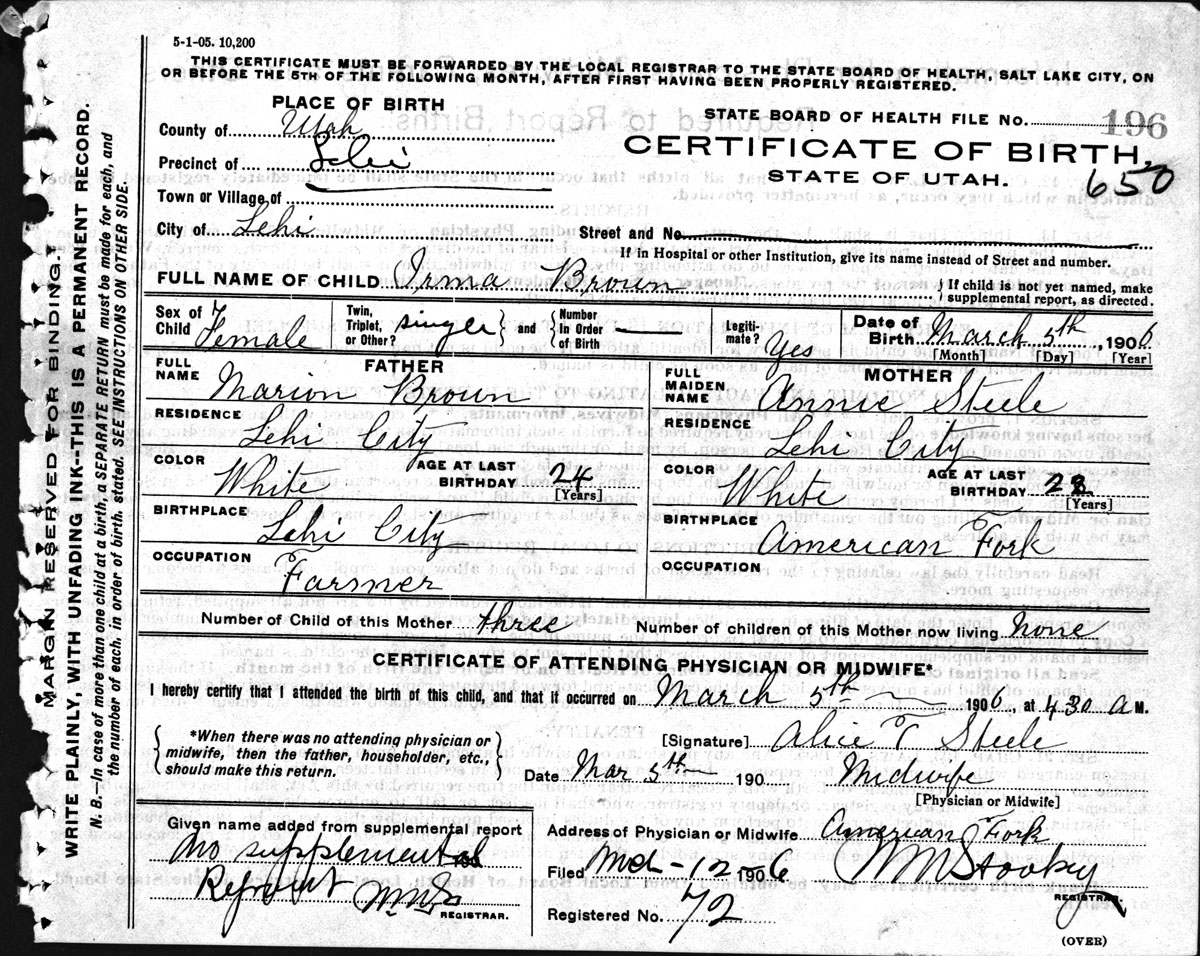 5-1-05. 10,200
THIS CERTIFICATE MUST BE FORWARDED BY THE LOCAL REGISTRAR TO THE STATE BOARD OF HEALTH, SALT LAKE CITY, ON
OR BEFORE THE 5TH OF THE FOLLOWING MONTH, AFTER FIRST HAVING BEEN PROPERLY REGISTERED.
PLACE OF BIRTH
County of Utah
Precinct of Lehi
Town or Village of
City of Lehi
STATE BOARD OF HEALTH FILE No. 196
CERTIFICATE OF BIRTH,
STATE OF UTAH.
650
Street and No.
If in Hospital or other Institution, give its name instead of Street and number.
FULL NAME OF CHILD Irma Brown { If child is not yet named, make supplemental report, as directed.
Sex of Child Female
Twin, Triplet, or Other? single and Number In Order of Birth —
Legitimate? Yes
Date of Birth March 5th, 1906
[Month] [Day] [Year]
FATHER
FULL NAME Marion Brown
RESIDENCE Lehi City
COLOR White AGE AT LAST BIRTHDAY 24 [Years]
BIRTHPLACE Lehi City
OCCUPATION Farmer
MOTHER
FULL MAIDEN NAME Annie Steele
RESIDENCE Lehi City
COLOR White AGE AT LAST BIRTHDAY 23 [Years]
BIRTHPLACE American Fork
OCCUPATION
Number of Child of this Mother three Number of children of this Mother now living none
CERTIFICATE OF ATTENDING PHYSICIAN OR MIDWIFE*.
I hereby certify that I attended the birth of this child, and that it occurred on March 5th 1906, at 430 A M.
*When there was no attending physician or
midwife, then the father, householder, etc.,
should make this return.
[Signature] Alice T Steele
Date Mar 5th 190 Midwife
[Physician or Midwife]
Given name added from supplemental report
No supplemental
190
Report
REGISTRAR.
Address of Physician or Midwife American Fork
Filed Mch-12 1906
REGISTRAR.
Registered No. 72
(OVER)
MARGIN RESERVED FOR BINDING.
WRITE PLAINLY, WITH UNFADING INK--THIS IS A PERMANENT RECORD.
N. B.—In case of more than one child at a birth, a SEPARATE RETURN must be made for each, and
the number of each, in order of birth, stated. SEE INSTRUCTIONS ON OTHER SIDE.